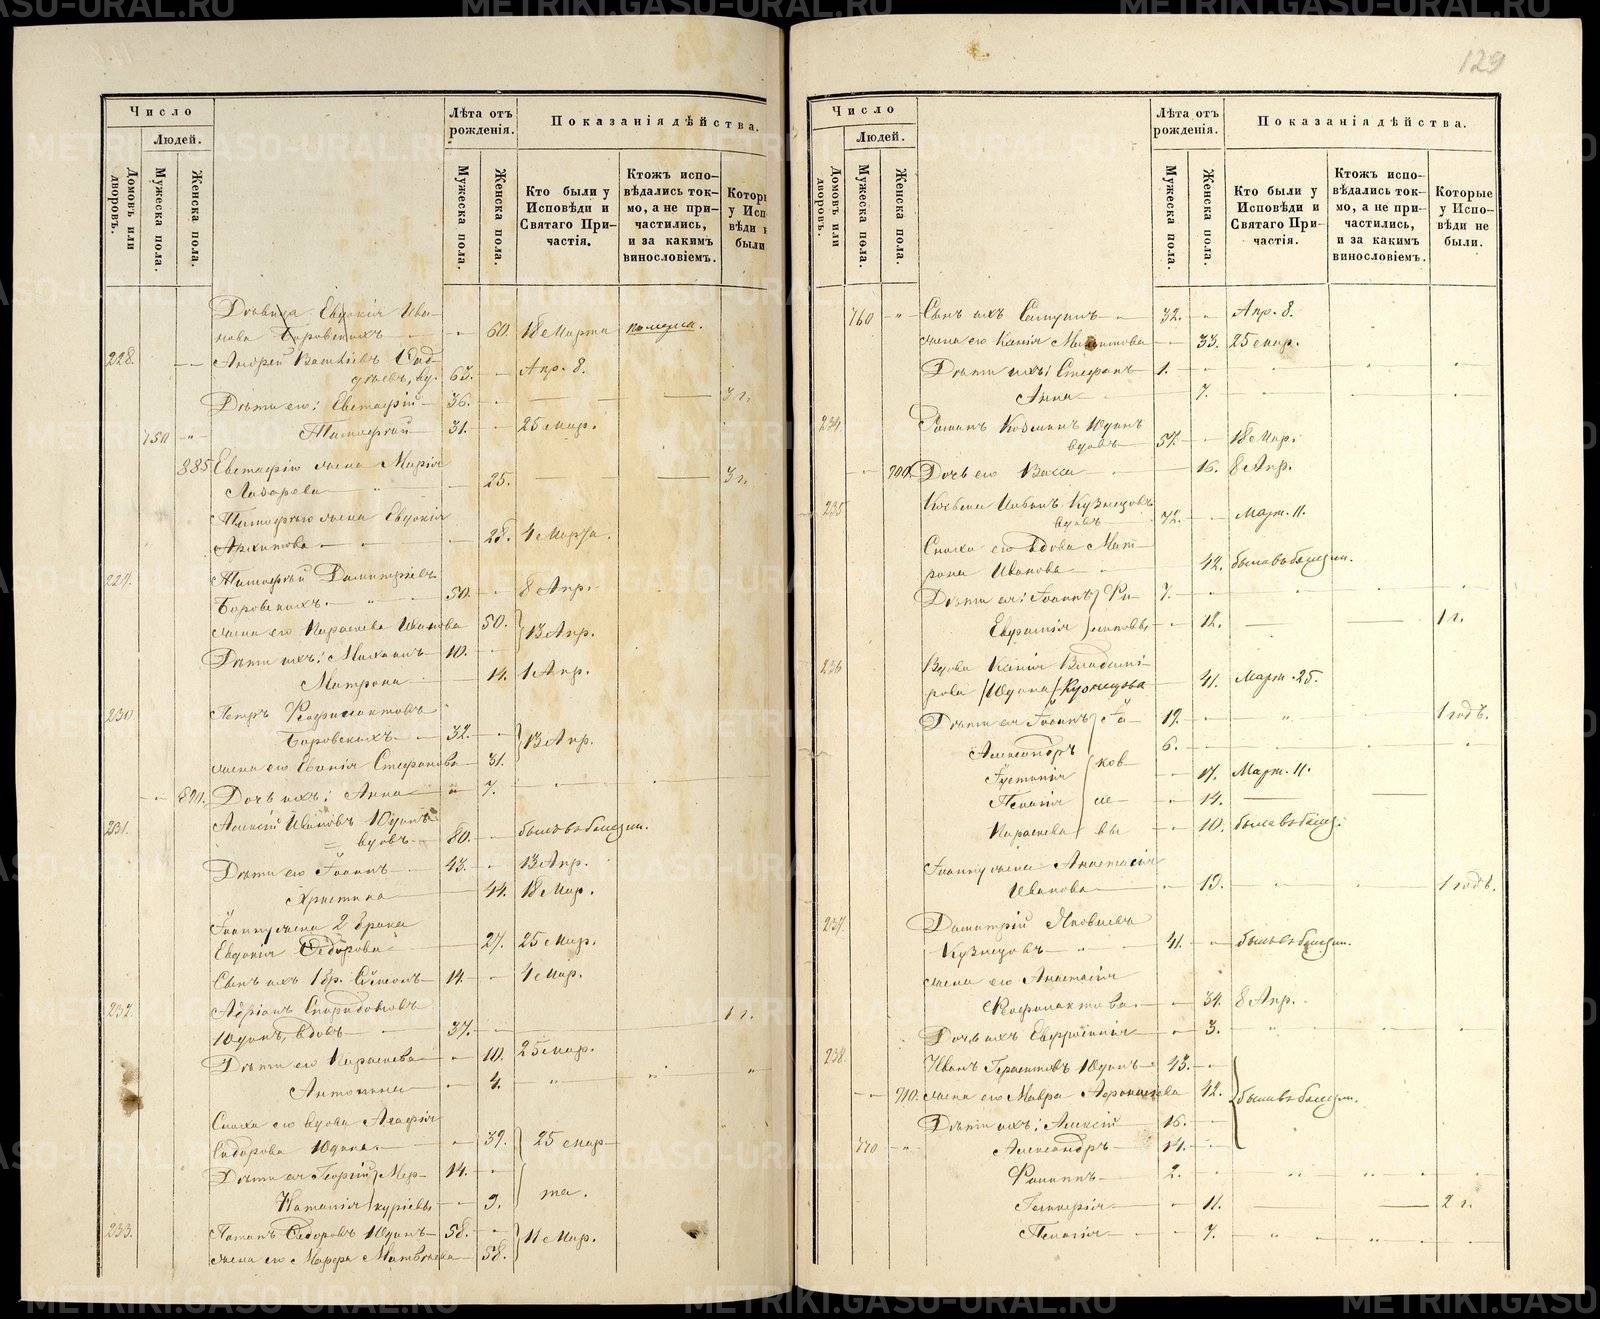 129
Число
Людей.
Домовъ или дворовъ.
Мужеска пола.
Женска пола.
Лѣта отъ рожденія.
Мужеска пола.
Женска пола.
Показанія дѣйства.
Кто были у Исповѣди и Святаго Причастія.
Ктожъ исповѣдались токмо, а не причастились, и за какимъ винословіемъ.
Которы у Исп вѣди н были
Дѣвица Евдокія Ива-
нова Боровскихъ 60. 18 Марта померла.
228. Андрей 63. Апр. 8.
Дѣти его: Евстафій 36. 3 г.
750 Тимофей 31. 25 Мар.
885 Евстафію жена Марія
Лазарева 25. 3 г.
Тимофею жена Евдокія
28. 4 Марта.
229. Тимофей Димитріевъ
Боровскихъ. 50. 8 Апр.
жена его Параскева Иванова 50. 13 Апр.
Дѣти ихъ: Михаилъ 10.
Матрона 14. 1 Апр.
230 Петръ Феофилактовъ
Боровскихъ 32. 13 Апр.
жена его Евгенія Стефанова 31.
890. Дочь ихъ: Анна 7.
231. Алексій Ивановъ Юдинъ
вдовъ 80. былъ въ болезни.
Дѣти его Іоаннъ 43. 13 Апр.
Христина 44. 18 Мар.
Іоанну жена 2 брака
Евдокія Ѳедорова 27. 25 Мар.
Сынъ ихъ 1 бр. Сѵмеонъ 14. 4 Мар.
232. Адріанъ Спиридоновъ
Юдинъ, вдовъ 37. 1 г.
Дѣти его Параскева 10. 25 Мар.
Антонина 4.
Сноха его вдова Агафія
Сидорова Юдина. 39. 25 мар
Дѣти ея Георгій Мер- 14. та.
Наталія куріевы 9.
233. Потапъ Ѳедоровъ Юдинъ 58. 11 Мар.
жена его Марфа Матвѣева 58.
Число
Людей.
Домовъ или дворовъ.
Мужеска пола.
Женска пола.
Лѣта отъ рожденія.
Мужеска пола.
Женска пола.
Показанія дѣйства.
Кто были у Исповѣди и Святаго Причастія.
Ктожъ исповѣдались токмо, а не причастились, и за какимъ винословіемъ.
Которые у Исповѣди не были.
760 Сынъ ихъ 32. Апр. 8.
жена его Ксенія 33. 25 мар.
Дѣти ихъ: Стефанъ 1.
Анна 7.
234. Романъ Козминъ Юдинъ
вдовъ 57. 18 Мар.
900. Дочь его Васса 16. 8 Апр.
235 Кузнецовъ
вдовъ 72. Март. 11.
Сноха его вдова Мат-
рона Иванова 42. была въ болезни.
Дѣти ея: Іоаннъ Фи- 7.
Евфросинія липповы 12. 1 г.
236 Вдова Ксенія Владимі-
рова /Юдина/ Кузнецова 41. Март. 25.
Дѣти ея Іоаннъ Іа- 19. 1 годъ.
Александръ 6.
Іустинія ков- 17. Март. 11.
Пелагія ле- 14.
Параскева вы 10. была въ болез.
Іоанну жена Анастасія
Иванова 19. 1 годъ.
237. Димитрій Яковлевъ
Кузнецовъ 41. былъ въ болезни.
жена его Анастасія
Феофилактова 34. 8 Апр.
Дочь ихъ Евфросинія 3.
238 Иванъ Юдинъ 43.
910. жена его Мавра Афанасьева 42. были въ болезни.
Дѣти ихъ: Алексій 16.
770 Александръ 14.
Филиппъ 2.
Гликерія 11. 2 г.
Пелагія 7.
METRIKI.GASO-URAL.RU